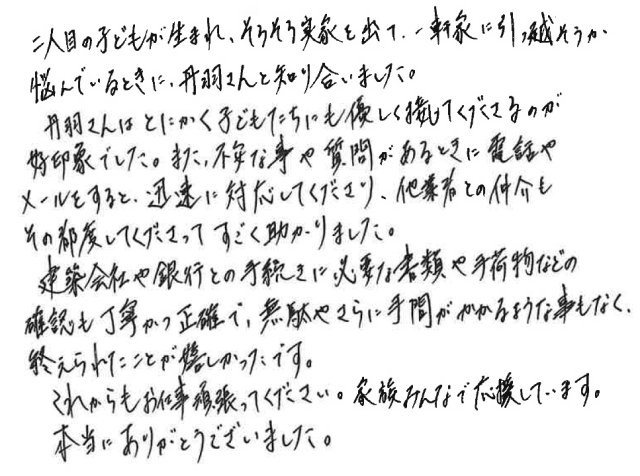 二人目の子どもが生まれ、そろそろ実家を出て、一軒家に引っ越そうか
悩んでいるときに、丹羽さんと知り合いました。
丹羽さんはとにかく子どもたちにも優しく接してくださるのが
好印象でした。また、不安な事や質問があるときに電話や
メールをすると、迅速に対応してくださり、他業者との仲介も
その都度してくださってすごく助かりました。
建築会社や銀行との手続きに必要な書類や手荷物などの
確認も丁寧かつ正確で、無駄やさらに手間がかかるような事もなく、
終えられたことが嬉しかったです。
これからもお仕事頑張ってください。家族みんなで応援しています。
本当にありがとうございました。